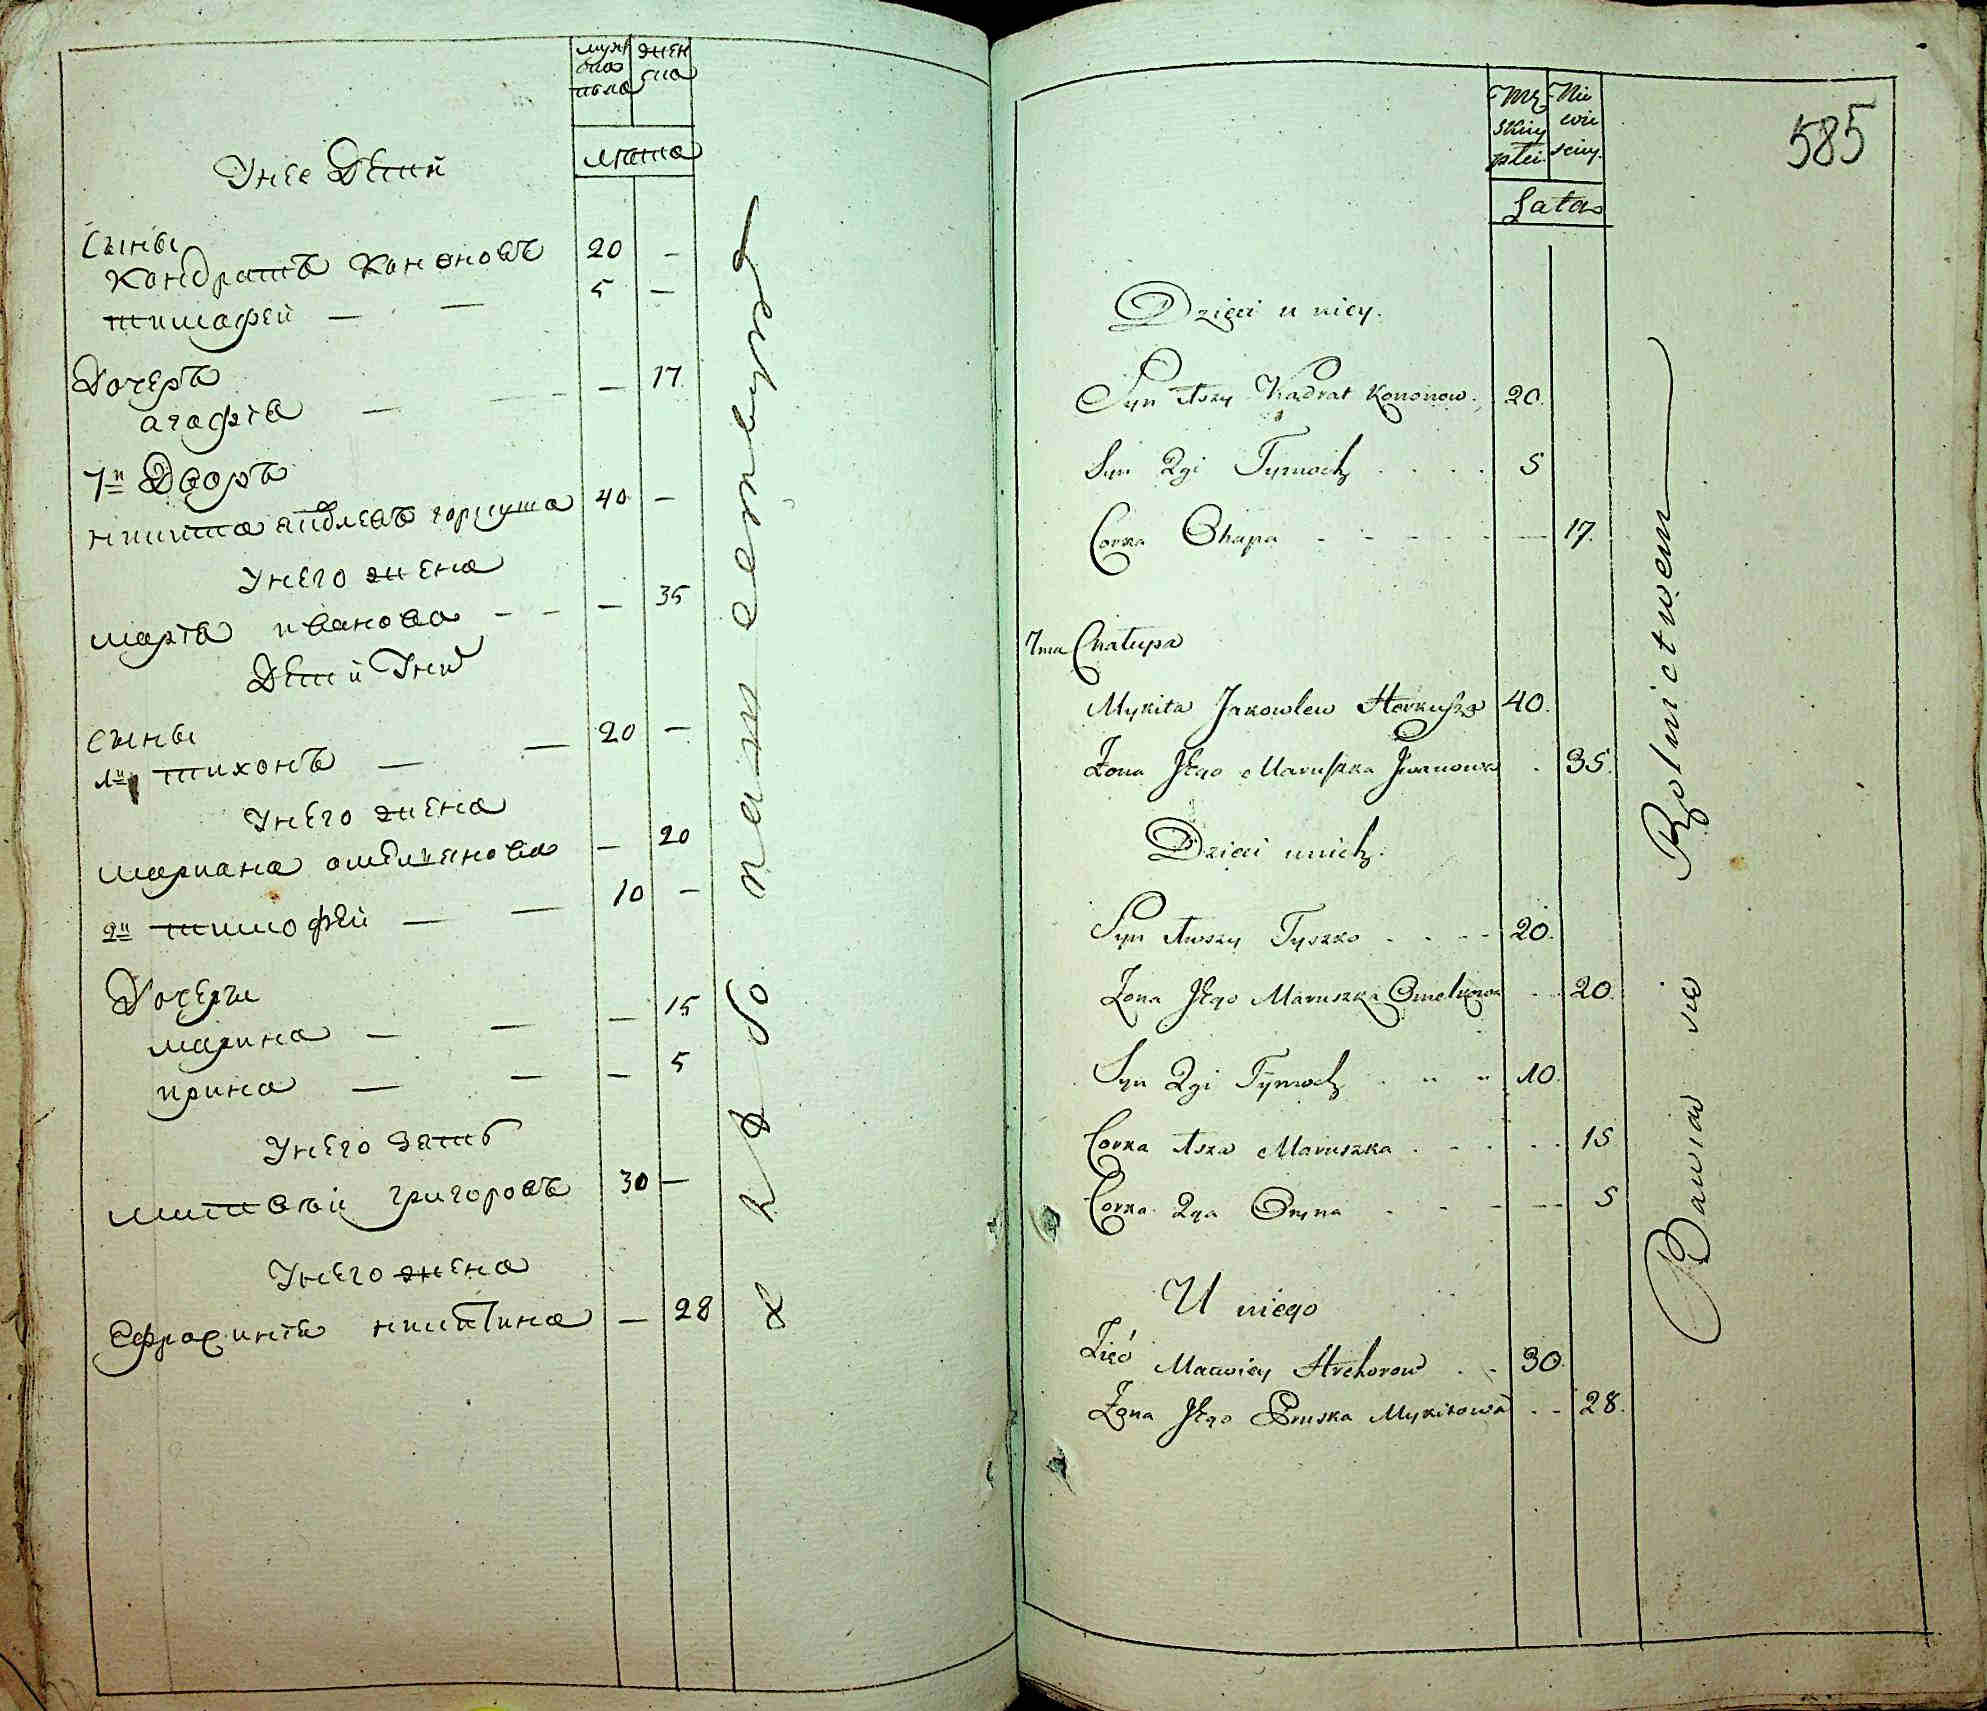 мужеска пола женска
лѣта
У нее Дѣтй
Сыны
Кондратъ Кононовъ 20 —
тимафеи — — 5 —
Дочеръ
агафіа — — — 17
7й Дворъ
никита яковлевъ горкуша 40 —
У него жена
маріа иванова — — — 35
Дѣти У них
сыны
1й тихонъ — — 20 —
У него жена
мариана омелянова — 20
2й тимофей — — 10 —
Дочери
марина — — — 15
ирина — — — 5
У него зать
матвѣй григоровъ 30 —
У него жена
Ефросиніа никитина — 28
Mę skiey płci Nie wie sciey.
Lata
585
Dzieci u niey.
Syn 1szy Kądrat Kononow. 20.
Syn 2gi Tymoch . . . . 5
Corka Ohapa - - - - - 17.
7ma Chałupa
Mykita Jakowlew Horkusza 40.
Żona Jego Maruszka Jwanowa . 35.
Dzieci u nich.
Syn 1wszy Tyszko . . - - 20.
Żona Jego Maruszka Omelianowa . . 20.
Syn 2gi Tymoch . " " 10.
Corka 1sza Maruszka . - - . - 15
Corka 2ga Oryna . - - - - 5
U niego
Zięć Macwiey Hrehorow . - 30.
Żona Jego Pruska Mykitowa . - 28.
Bawia sie Rolnictwem